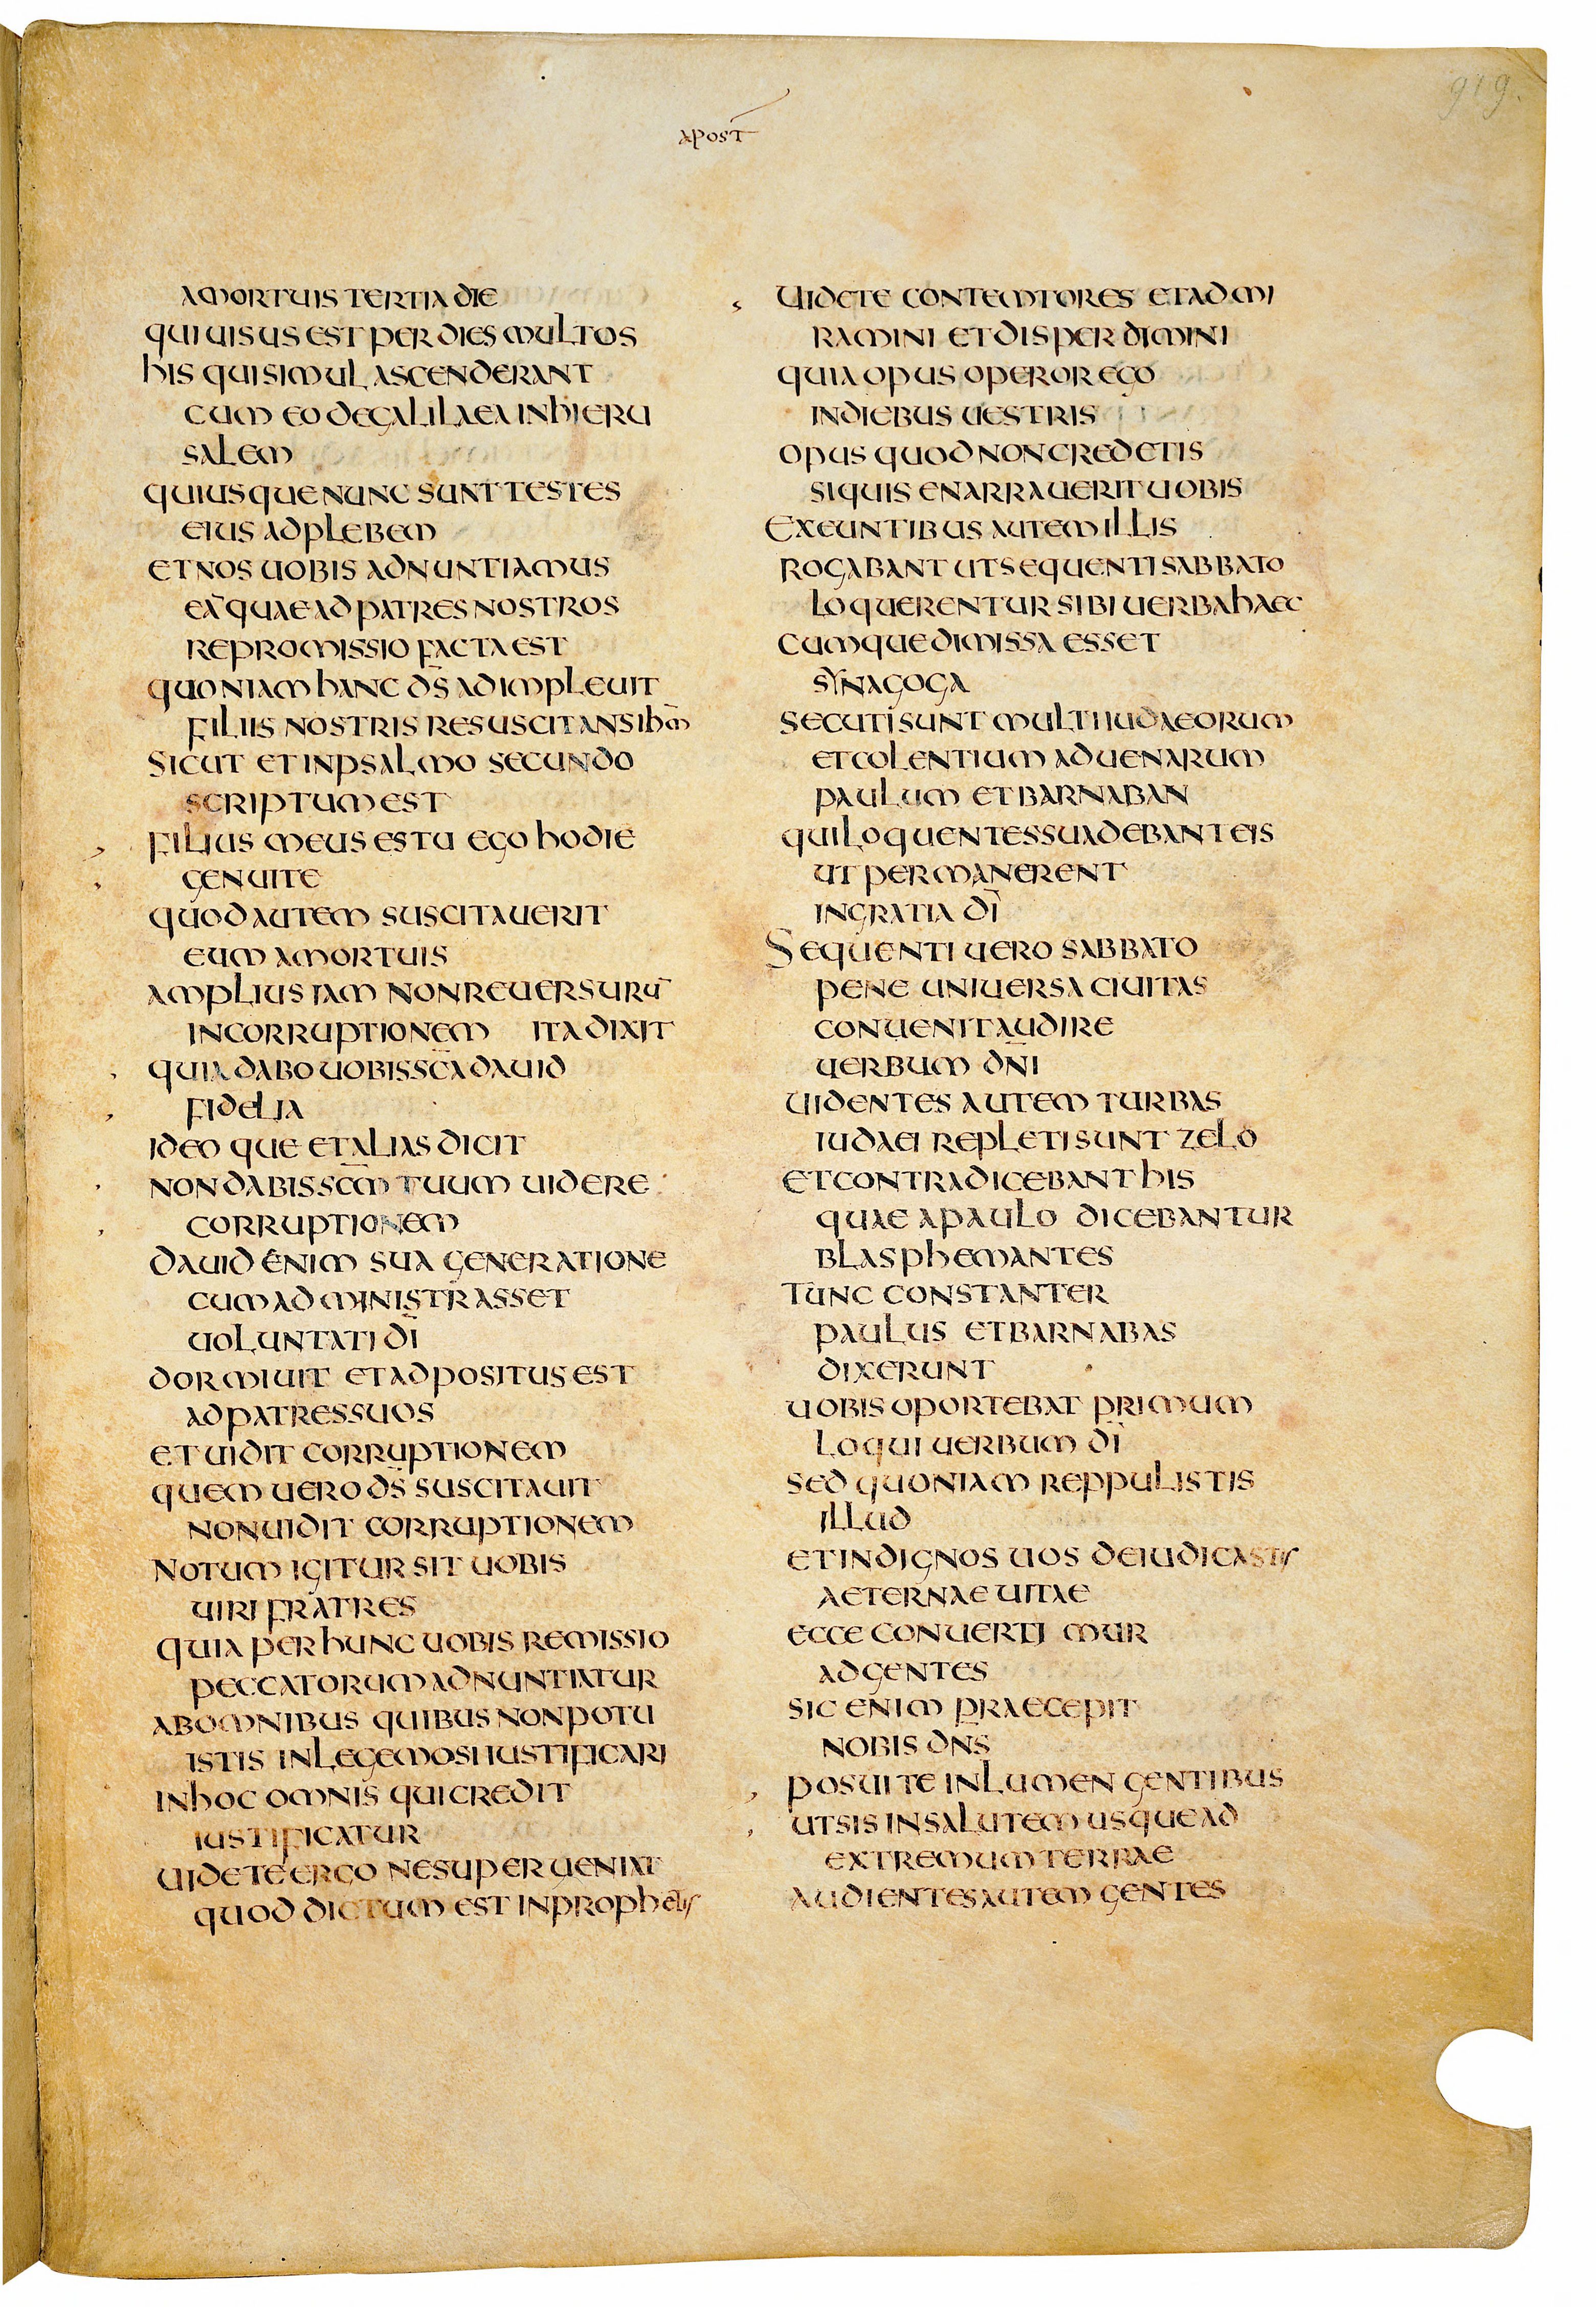 919.
APOST
AMORTUIS TERTIA DIE
QUI UISUS EST PER DIES MULTOS
HIS QUI SIMUL ASCENDERANT
CUM EO DEGALILAEA INHIERU
SALEM
QUIUSQUE NUNC SUNT TESTES
EIUS ADPLEBEM
ET NOS UOBIS ADNUNTIAMUS
EA QUAE AD PATRES NOSTROS
REPROMISSIO FACTA EST
QUONIAM HANC DS̄ ADIMPLEUIT
FILIIS NOSTRIS RESUSCITANS IHM̄
SICUT ET INPSALMO SECUNDO
SCRIPTUM EST
FILIUS MEUS ES TU EGO HODIE
GENUI TE
QUOD AUTEM SUSCITAUERIT
EUM AMORTUIS
AMPLIUS IAM NON REUERSURŪ
INCORRUPTIONEM ITA DIXIT
QUIA DABO UOBIS SC̄A DAUID
FIDELIA
IDEOQUE ET ALIAS DICIT
NON DABIS SC̄M TUUM UIDERE
CORRUPTIONEM
DAUID ENIM SUA GENERATIONE
CUM ADMINISTRASSET
UOLUNTATI DĪ
DORMIUIT ET ADPOSITUS EST
AD PATRES SUOS
ET UIDIT CORRUPTIONEM
QUEM UERO DS̄ SUSCITAUIT
NON UIDIT CORRUPTIONEM
NOTUM IGITUR SIT UOBIS
UIRI FRATRES
QUIA PER HUNC UOBIS REMISSIO
PECCATORUM ADNUNTIATUR
AB OMNIBUS QUIBUS NON POTU
ISTIS IN LEGE MOSI IUSTIFICARI
IN HOC OMNIS QUI CREDIT
IUSTIFICATUR
UIDETE ERGO NE SUPERUENIAT
QUOD DICTUM EST IN PROPHETIS
UIDETE CONTEMTORES ET ADMI
RAMINI ET DISPERDIMINI
QUIA OPUS OPEROR EGO
IN DIEBUS UESTRIS
OPUS QUOD NON CREDETIS
SI QUIS ENARRAUERIT UOBIS
EXEUNTIBUS AUTEM ILLIS
ROGABANT UT SEQUENTI SABBATO
LOQUERENTUR SIBI UERBA HAEC
CUMQUE DIMISSA ESSET
SYNAGOGA
SECUTI SUNT MULTI IUDAEORUM
ET COLENTIUM ADUENARUM
PAULUM ET BARNABAN
QUI LOQUENTES SUADEBANT EIS
UT PERMANERENT
IN GRATIA DĪ
SEQUENTI UERO SABBATO
PENE UNIUERSA CIUITAS
CONUENIT AUDIRE
UERBUM DN̄I
UIDENTES AUTEM TURBAS
IUDAEI REPLETI SUNT ZELO
ET CONTRADICEBANT HIS
QUAE A PAULO DICEBANTUR
BLASPHEMANTES
TUNC CONSTANTER
PAULUS ET BARNABAS
DIXERUNT
UOBIS OPORTEBAT PRIMUM
LOQUI UERBUM DĪ
SED QUONIAM REPPULISTIS
ILLUD
ET INDIGNOS UOS DEIUDICASTIS
AETERNAE UITAE
ECCE CONUERTIMUR
AD GENTES
SIC ENIM PRAECEPIT
NOBIS DN̄S
POSUI TE IN LUMEN GENTIBUS
UT SIS IN SALUTEM USQUE AD
EXTREMUM TERRAE
AUDIENTES AUTEM GENTES